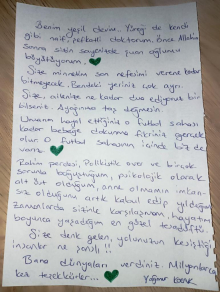 Benim yeşil devim.. Yüreği de kendi
gibi naif, şefkatli doktorum. Önce Allah'ın
sonra sizin sayenizde şuan oğlumu
büyütüyorum.
Size minnetim son nefesimi verene kadar
bitmeyecek. Bendeki yeriniz çok ayrı.
Size, ailenize ne kadar dua ediyorum bir
bilseniz. Ayağınıza taş değmesin.
Umarım hayal ettiğiniz o futbol sahası
kadar bebeğe dokunma fikriniz gerçek
olur. O futbol sahasının içinde biz de
varız
Rahim perdesi, Polikistik over ve birçok
sorunla boğuştuğum, psikolojik olarak
alt üst olduğum, anne olmamın imkan-
sız olduğunu artık kabul edip yıldığım
zamanlarda sizinle karşılaşmam, hayatım
boyunca yaşadığım en güzel tesadüftü.
Size denk gelen, yolunuzun kesiştiği
insanlar ne şanslı !!
Bana dünyaları verdiniz. Milyonlarca
kez teşekkürler...
Yağmur